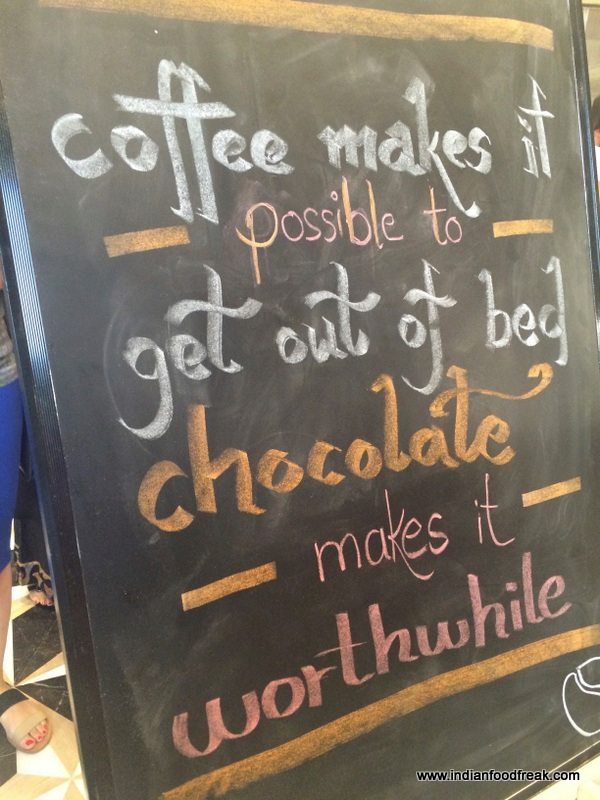 coffee makes it
possible to
get out of bed
chocolate
makes it
worthwhile
www.indianfoodfreak.com